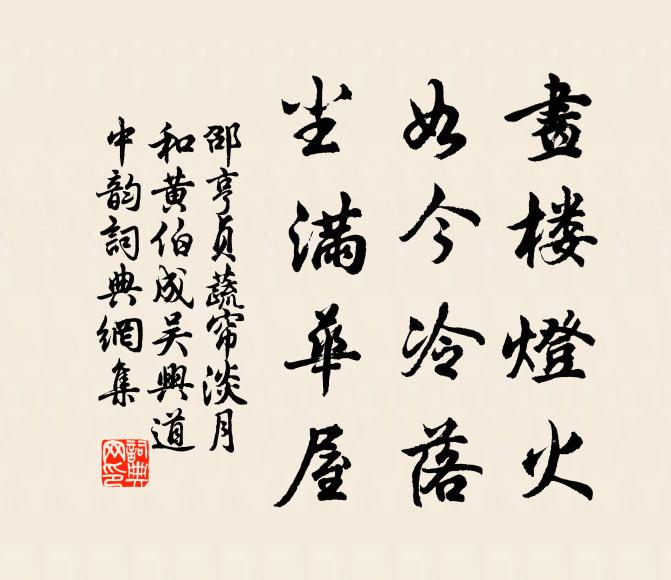 畫楼燈火
如今冷落
尘滿華屋
邵亨貞蔬帘淡月
和黄伯成吴興道
中韵詞典網集
詞典網印